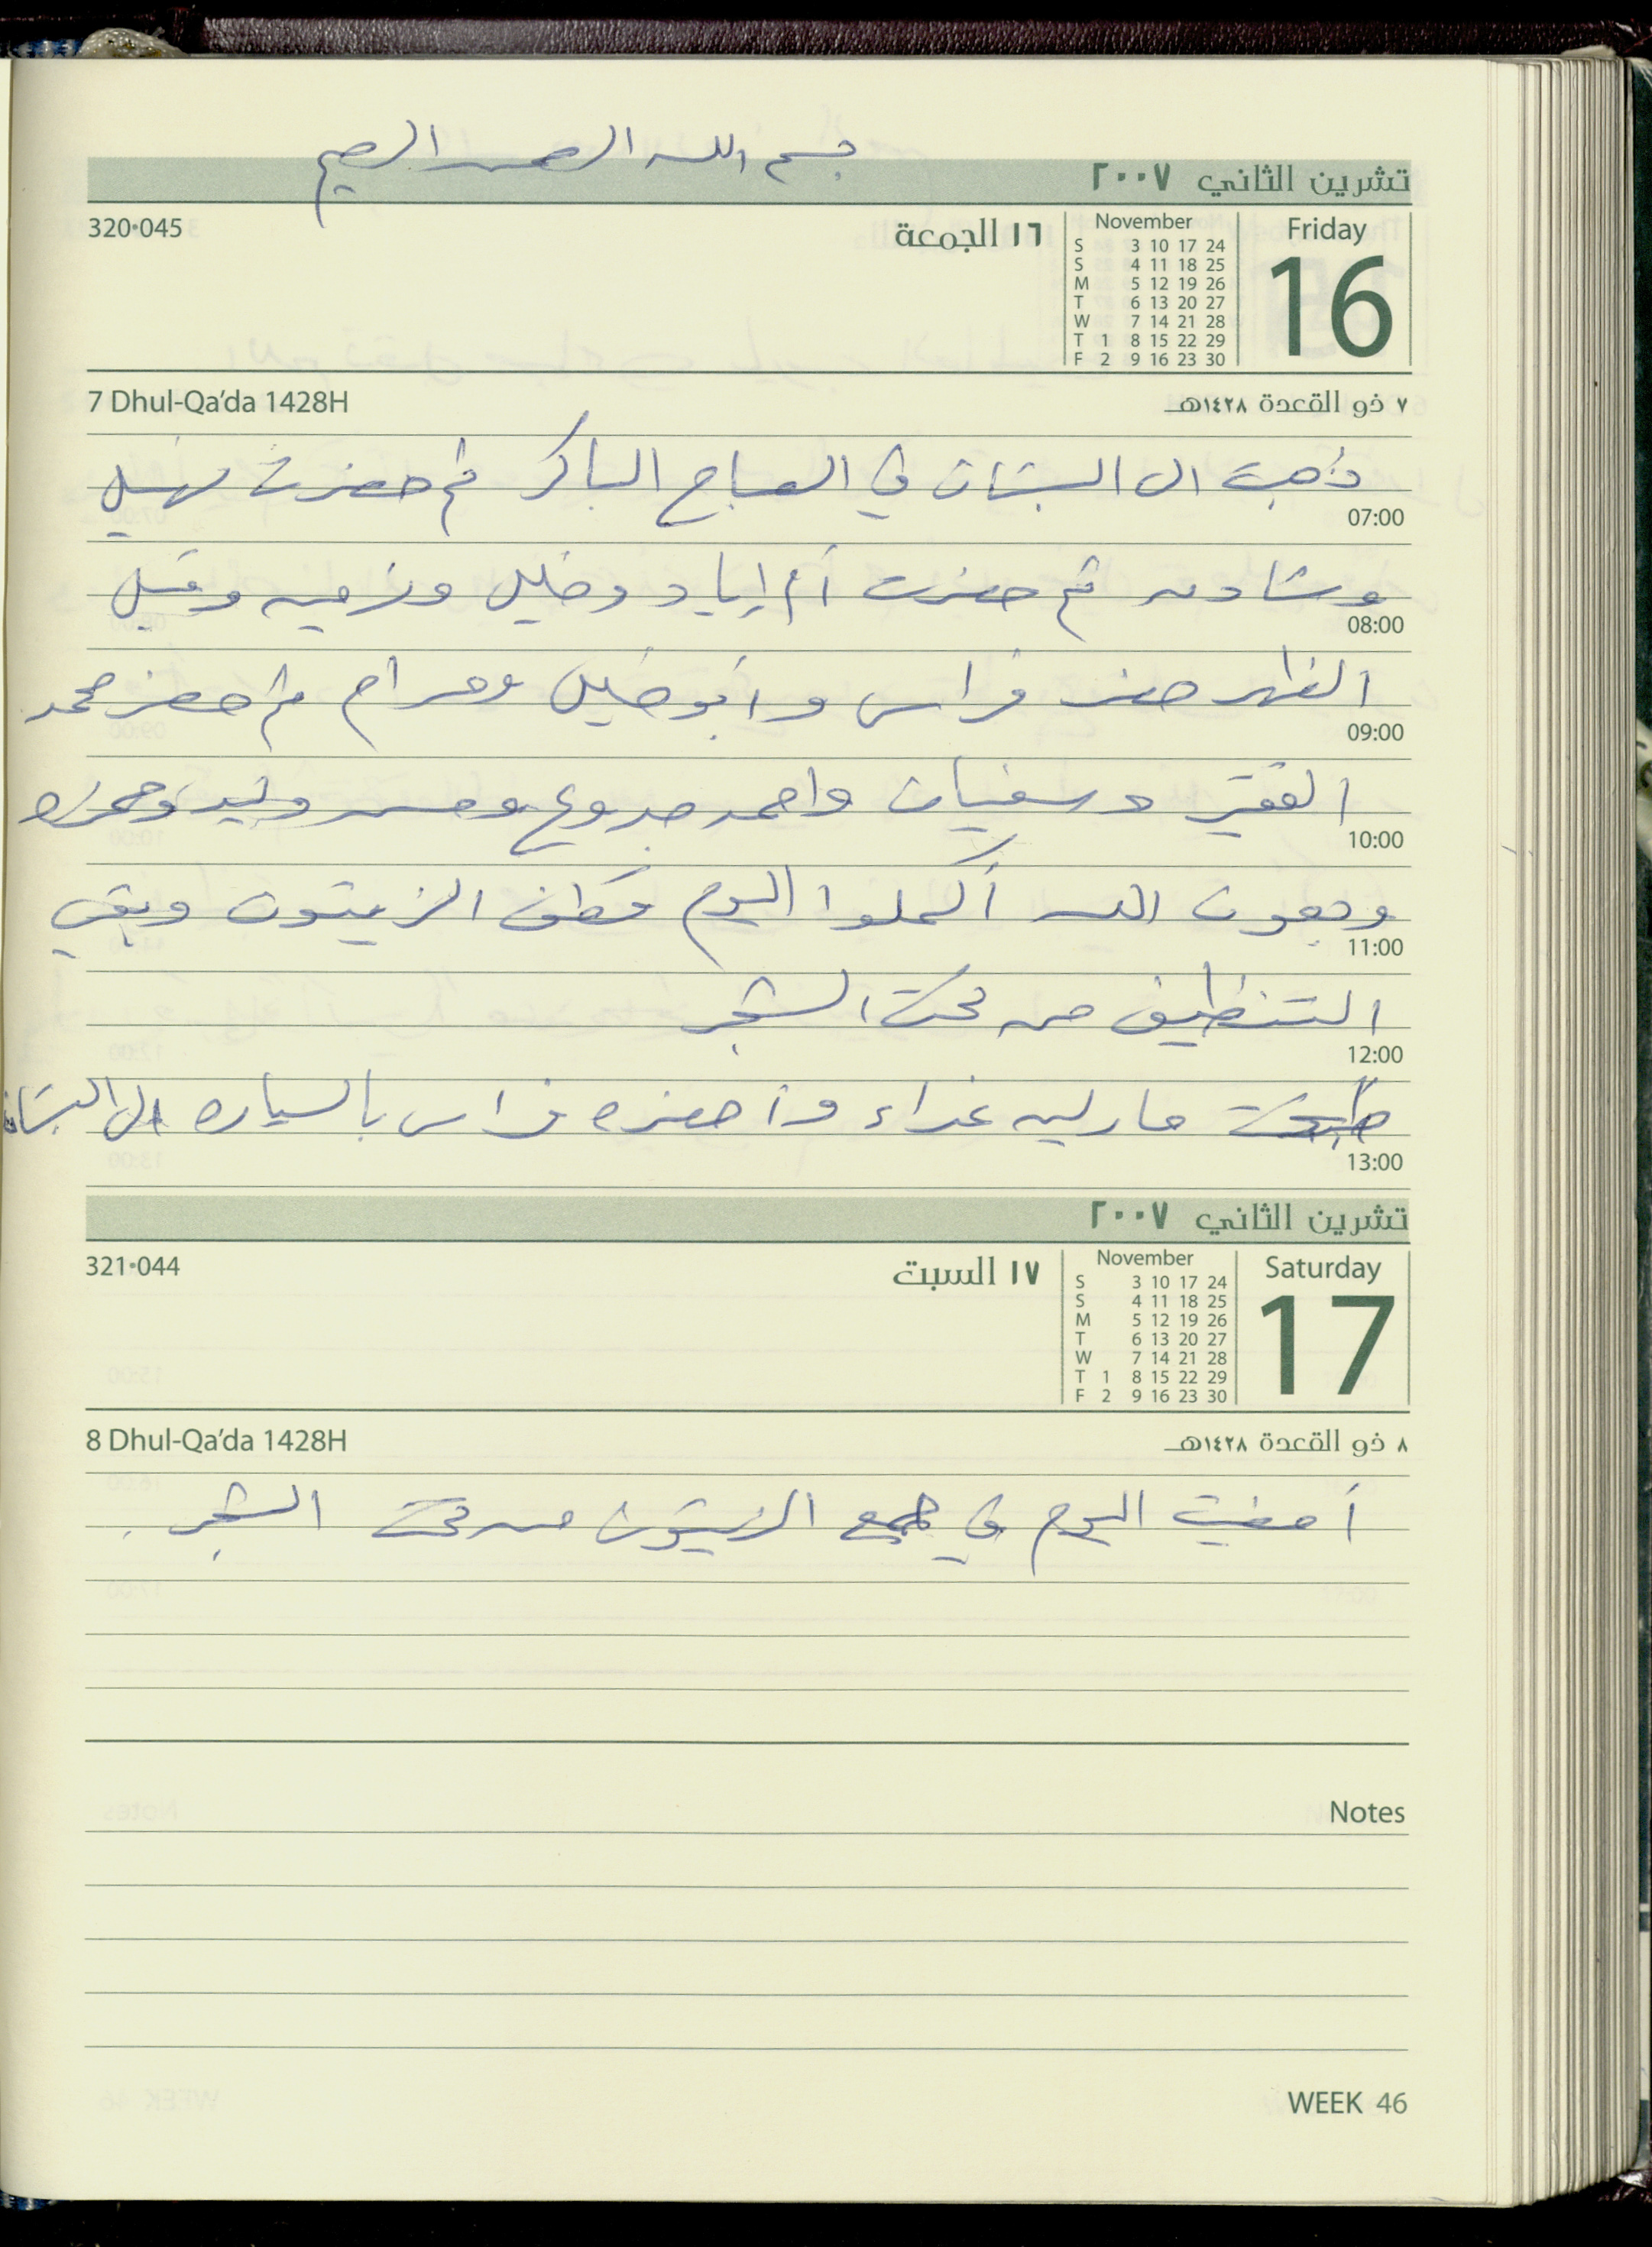 بسم الله الرحمن الرحيم
تشرين الثاني ٢٠٠٧
320·045
١٦ الجمعة
November
S 3 10 17 24
S 4 11 18 25
M 5 12 19 26
T 6 13 20 27
W 7 14 21 28
T 1 8 15 22 29
F 2 9 16 23 30
Friday
16
7 Dhul-Qa'da 1428H
٧ ذو القعدة ١٤٢٨هـ
ذهبت الى البستان في الصباح الباكر ثم حضرت نهيل
07:00
وشادن ثم حضرت أم إياد وخليل ونزميه وقبل
08:00
الظهر حضر فراس وأبو خليل ومرام ثم احضر محمد
09:00
الفقير وسفيان واحمد جدوع وحسن وليد وحمزه
10:00
وبعون الله أكملوا اليوم قطف الزيتون وبقي
11:00
التنظيف من تحت الشجر
12:00
طبخت ماريه غداء وأحضره فراس بالسياره الى البستان
13:00
تشرين الثاني ٢٠٠٧
321·044
١٧ السبت
November
S 3 10 17 24
S 4 11 18 25
M 5 12 19 26
T 6 13 20 27
W 7 14 21 28
T 1 8 15 22 29
F 2 9 16 23 30
Saturday
17
8 Dhul-Qa'da 1428H
٨ ذو القعدة ١٤٢٨هـ
أمضيت اليوم في جمع الزيتون من تحت الشجر.
Notes
WEEK 46